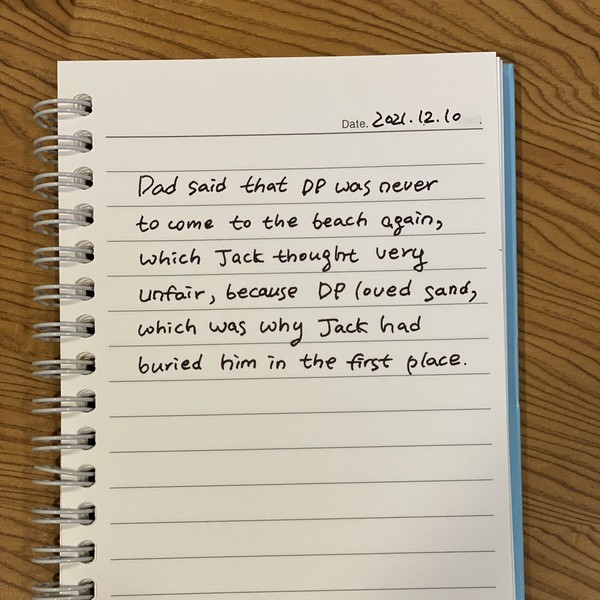 Date. 2021.12.10
Dad said that DP was never
to come to the beach again,
which Jack thought very
unfair, because DP loved sand,
which was why Jack had
buried him in the first place.